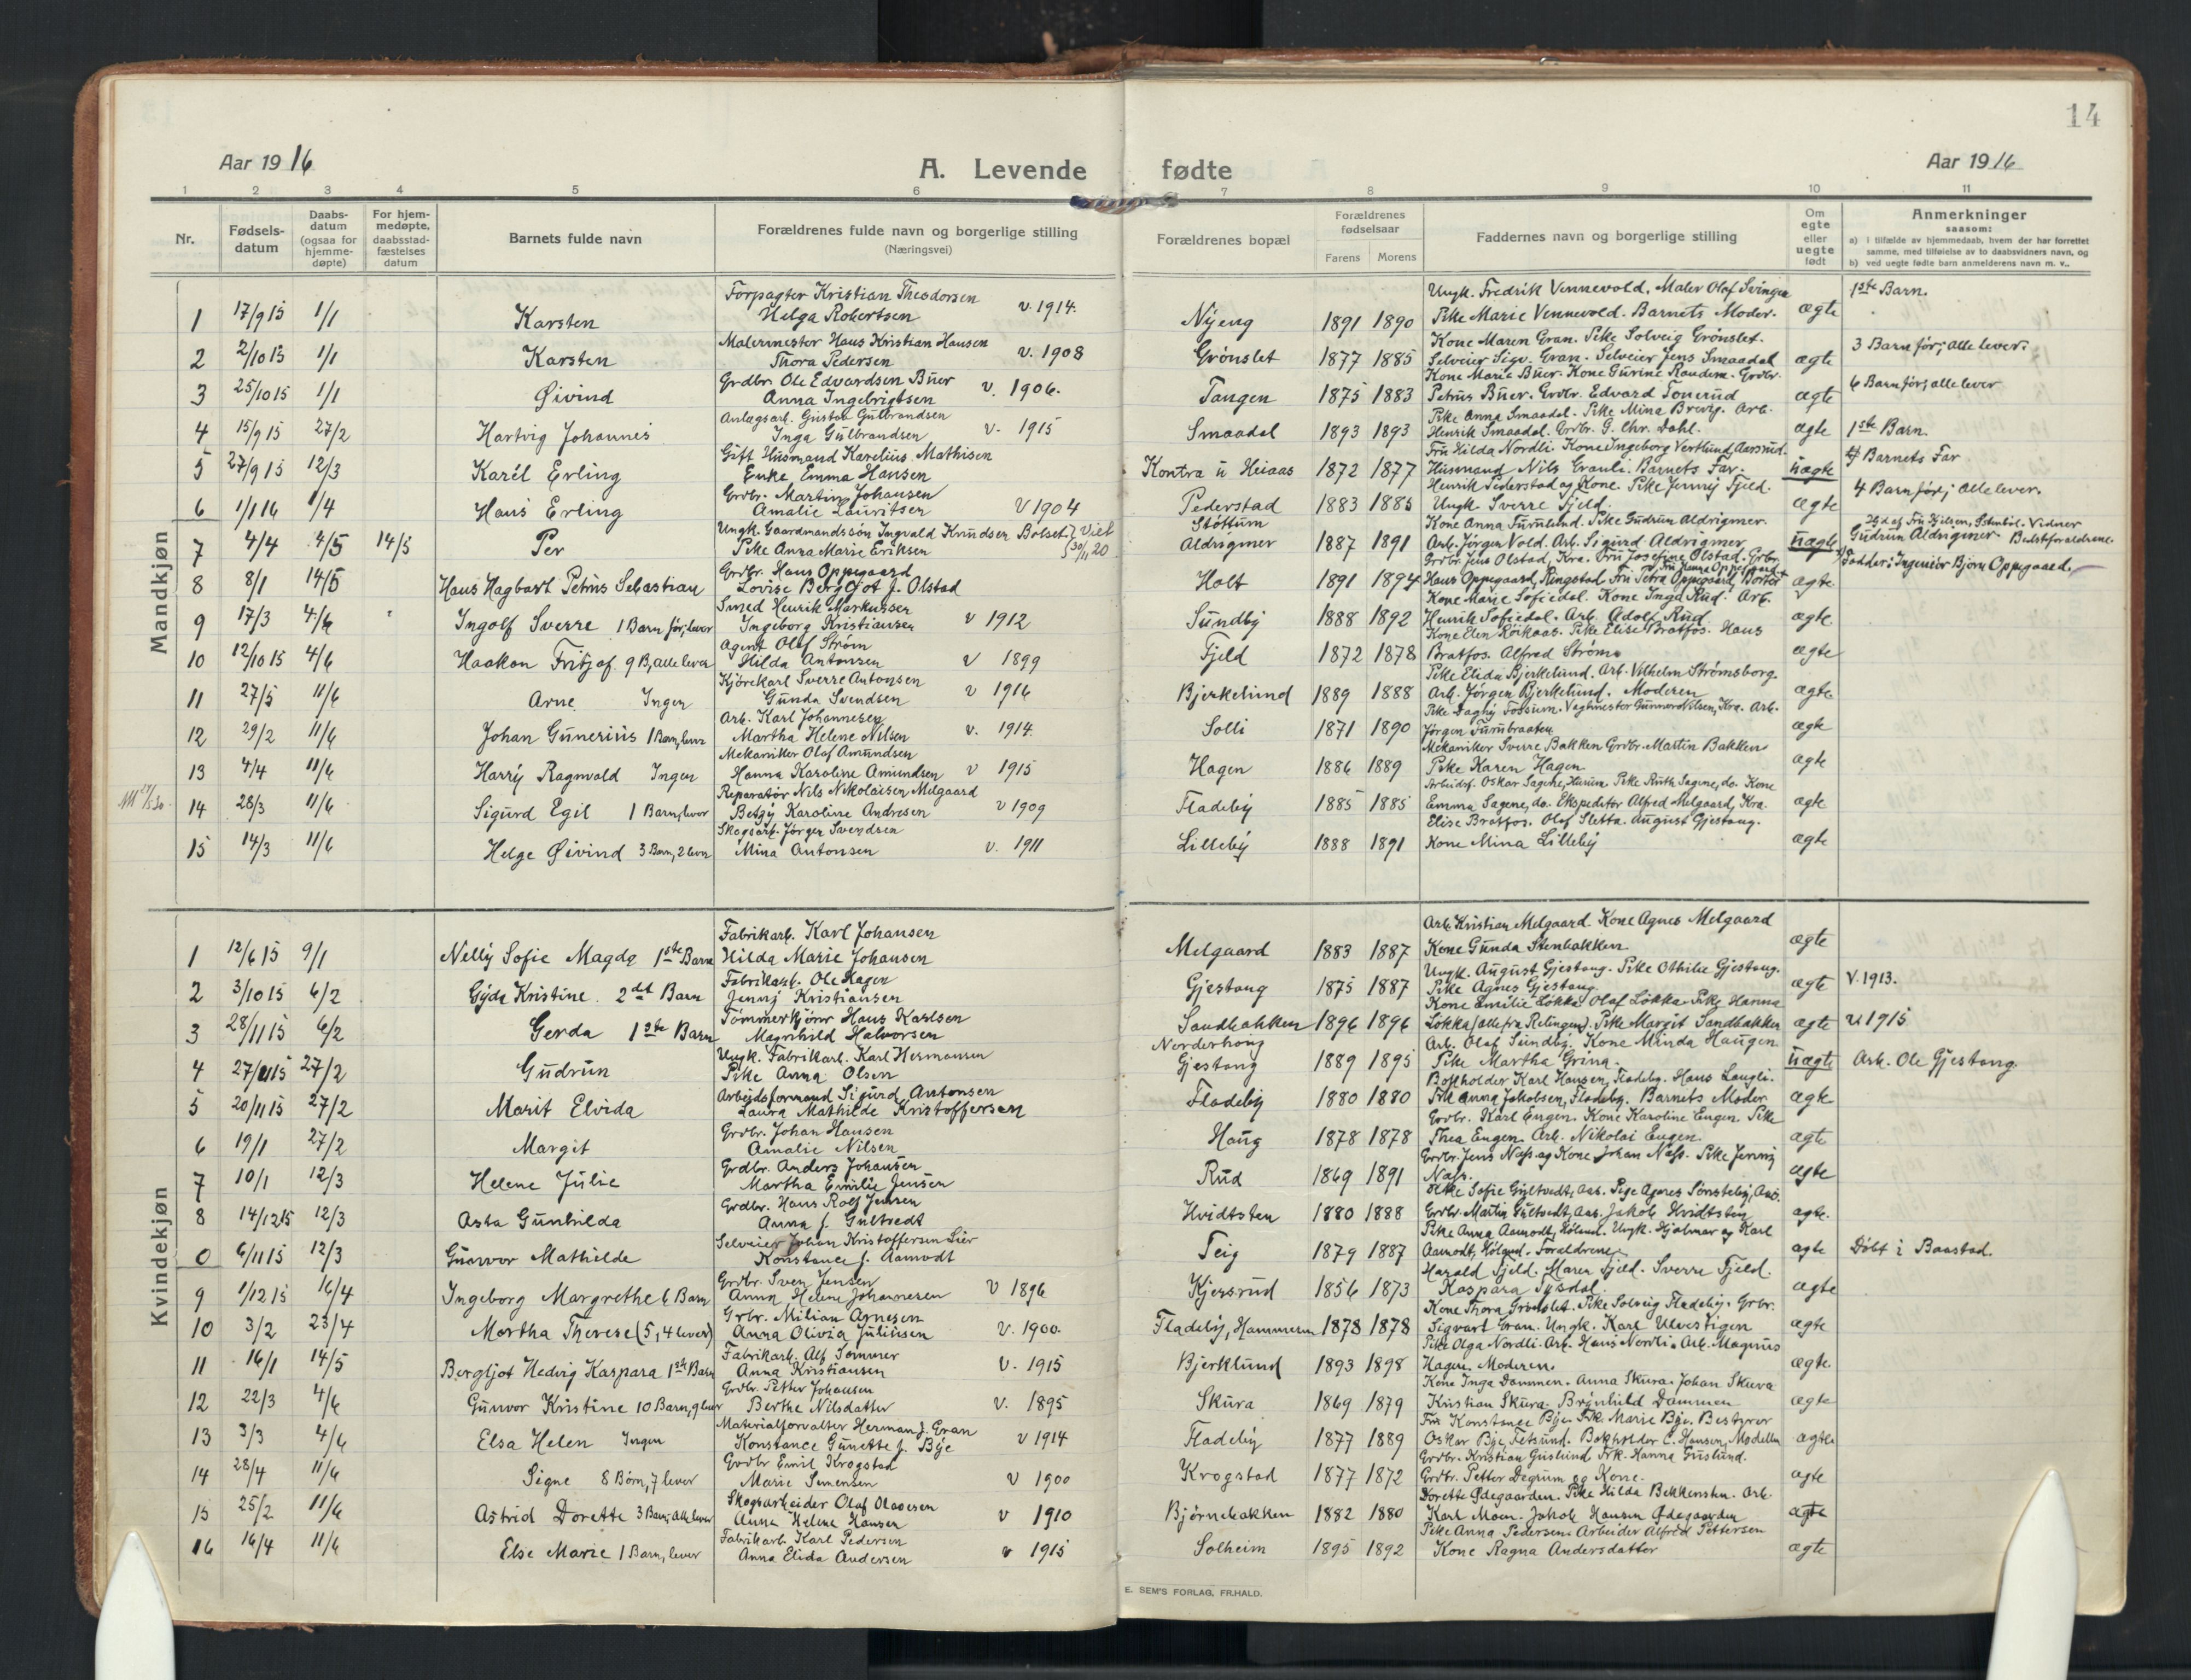 14
Aar 1916
A. Levende fødte
Aar 1916
1 2 3 4 5 6 7 8 9 10 11
Nr.
Fødsels-datum
Daabs-datum (ogsaa for hjemme-døpte)
For hjem-medøpte, daabsstad-fæstelses datum
Barnets fulde navn
Forældrenes fulde navn og borgerlige stilling (Næringsvei)
Forældrenes bopæl
Forældrenes fødselsaar
Farens Morens
Faddernes navn og borgerlige stilling
Om egte eller uegte født
Anmerkninger saasom:
a) i tilfælde av hjemmedaab, hvem der har forrettet samme, med tilføielse av to daabsvidners navn, og
b) ved uegte fødte barn anmelderens navn m. v..
Mandkjøn
1 17/9 15 1/1 Karsten
Forpagter Kristian Theodorsen
Helga Robertsen v. 1914.
Nyeng 1891 1890
Ungk. Fredrik Vennevold. Maler Olaf Svingen
Pike Marie Vennevold. Barnets Moder. ægte 1ste Barn.
2 2/10 15 1/1 Karsten
Malermester Hans Kristian Hansen
Thora Pedersen v. 1908
Grønslet 1877 1885
Kone Maren Gran. Pike Solveig Grønslet.
Selveier Sigv. Gran. Selveier Jens Smaadal ægte 3 Barn før; alle lever.
3 25/10 15 1/1 Øivind
Grdbr. Ole Edvardsen Buer
Anna Ingebrigtsen v. 1906.
Tangen 1875 1883
Kone Marie Buer. Kone Gurine Raudem. Grdbr.
Petrus Buer. Grdbr. Edvard Tonerud ægte 6 Barn før; alle lever
4 15/9 15 27/2 Hartvig Johannes
Anlægsarb. Gustav Gulbrandsen
Inga Gulbrandsen v. 1915
Smaadal 1893 1893
Pike Anna Smaadal. Pike Mina Brevig. Arb.
Henrik Smaadal. Grdbr. G. Chr. Dahl. ægte 1ste Barn.
5 27/9 15 12/3 Karél Erling
Gift Husmand Karelius Mathisen
Enke Emma Hansen
Kontra u Heiaas 1872 1877
Fru Hilda Nordli. Kone Ingeborg Vestlund, Aarsrud.
Husmand Nils Grauli. Barnets Far. uægte Barnets Far
6 1/1 16 1/4 Hans Erling
Grdbr. Martin Johansen
Amalie Lauritsen V 1904
Pederstad 1883 1885
Henrik Pederstad og Kone. Pike Jenny Fjeld.
Ungk. Sverre Fjeld. ægte 4 Barn før; alle lever.
7 4/4 4/5 14/5 Per
Ungk. Gaardmandssøn Ingvald Knudsen Bolset
Pike Anna Marie Eriksen Viet 30/11 20
Støttum
Aldrigmer 1887 1891
Kone Anna Furulund. Pike Gudrun Aldrigmer.
Arb. Jørgen Vold. Arb. Sigurd Aldrigmer uægte
Gudrun Aldrigmer. Bedstforældrene
8 8/1 14/5 Hans Hagbart Petrus Sebastian
Grdbr. Hans Oppegaard
Lovise Bergljot J. Olstad
Holt 1891 1894
Grdbr. Jens Olstad, Kra. Fru Josefine Olstad. Grdbr.
Hans Oppegaard, Ringstad Fru Petra Oppegaard ægte Fadder: Ingeniør Bjørn Oppegaard.
9 17/3 4/6 Ingolf Sverre 1 Barn før; lever
Smed Henrik Markussen
Ingeborg Kristiansen v 1912
Sundby 1888 1892
Kone Marie Sofiedal. Kone Inga Rud. Arb.
Henrik Sofiedal. Arb. Adolf Rud. ægte
10 12/10 15 4/6 Haakon Fritjof. 9 B, alle lever
Agent Olaf Strøm
Hilda Antonsen v 1899
Fjeld 1872 1878
Kone Elen Röikaas. Pike Elise Bratfos. Hans
Bratfos. Alfred Strøm. ægte
11 27/5 11/6 Arne Ingen
Kjørekarl Sverre Antonsen
Gunda Svendsen v 1916
Bjerkelund 1889 1888
Pike Elida Bjerkelund. Arb. Vilhelm Strømsborg.
Arb. Jørgen Bjerkelund. Moderen ægte
12 29/2 11/6 Johan Gunerius 1 Barn, lever
Arb. Karl Johannesen
Martha Helene Nilsen v. 1914
Solli 1871 1890
Pike Dagny Fossum. Vagtmester Gunnar Nilsen, Kra. Arb.
Jørgen Furubraaten ægte
13 4/4 11/6 Harry Ragnvald Ingen
Mekaniker Olaf Amundsen
Hanna Karoline Amundsen v 1915
Hagen 1886 1889
Mekaniker Sverre Bakken Grdbr. Martin Bakken
Pike Karen Hagen ægte
14 28/3 11/6 Sigurd Egil 1 Barn, lever
Reparatør Nils Nikolaisen Melgaard
Betzy Karoline Andresen v 1909
Fladeby 1885 1885
Arbeidsf. Oskar Sagene, Hurum. Pike Ruth Sagene, do. Kone
Emma Sagene, do. Ekspeditør Alfred Melgaard, Kra. ægte
15 14/3 11/6 Helge Øivind 3 Barn, 2 lever
Skogsarb. Jørgen Svendsen
Mina Antonsen v. 1911
Lilleby 1888 1891
Elise Bratfos. Olaf Sletta. August Gjestang.
Kone Mina Lilleby ægte
Kvindekjøn
1 12/6 15 9/1 Nelly Sofie Magda 1ste Barn
Fabrikarb. Karl Johansen
Hilda Marie Johansen
Melgaard 1883 1887
Arb. Kristian Melgaard. Kone Agnes Melgaard
Kone Gunda Stenbakken. ægte
2 3/10 15 6/2 Gyda Kristine. 2det Barn
Fabrikarb. Ole Hagen
Jenny Kristiansen
Gjestang 1875 1887
Ungk. August Gjestang. Pike Othilie Gjestang.
Pike Agnes Gjestang. ægte V. 1913.
3 28/11 15 6/2 Gerda 1ste Barn
Tømmerkjører Hans Karlsen
Magnhild Halvorsen
Sandbakken 1896 1896
Kone Emilie Løkka Olaf Løkka. Pike Hanna
Løkka (alle fra Relingen). Pike Margit Sandbakken ægte v. 1915
4 27/11 15 27/2 Gudrun
Ungk. Fabrikarb. Karl Hermansen
Pike Anna Olsen
Norderhong
Gjestang 1889 1895
Arb. Olaf Sundby. Kone Minda Haugen
Pike Martha Grina. uægte Arb. Ole Gjestang.
5 20/11 15 27/2 Marit Elvida
Arbeidsformand Sigurd Antonsen
Laura Mathilde Kristoffersen
Fladeby 1880 1880
Bokholder Karl Hansen, Fladeby. Hans Laugli.
Frk Anna Jakobsen, Fladeby. Barnets Moder ægte
6 19/1 27/2 Margit
Grdbr. Johan Hansen
Amalie Nilsen
Haug 1878 1878
Grdbr. Karl Eugen. Kone Karoline Eugen. Pike
Thea Eugen. Arb. Nikolai Eugen. ægte
7 10/1 12/3 Helene Julie
Grdbr. Anders Johansen
Martha Emilie Jensen
Rud 1869 1891
Grdbr. Jens Næss og Kone Johan Næss. Pike Jenny
Næss. ægte
8 14/12 15 12/3 Asta Gunhilda
Grdbr. Hans Rolf Jensen
Anna J. Gultvedt
Hvidtsten 1880 1888
Pike Sofie Gyltvedt, Aas. Pige Agnes Sønsteby, Aas.
Grdbr. Martin Gultvedt, Aas. Jakob Hvidtsten ægte.
0 6/11 15 12/3 Gunvor Mathilde
Selveier Johan Kristoffersen Lier
Konstance J. Aamodt
Teig 1879 1887
Pike Anna Aamodt, Høland. Ungk. Hjalmar og Karl
Aamodt, Høland. Forældrene ægte Døbt i Baastad.
9 1/12 15 16/4 Ingeborg Margrethe 6 Barn
Grdbr. Sven Jensen
Anna Helene Johannesen V 1896
Kjersrud 1856 1873
Harald Fjeld. Maren Fjeld. Sverre Fjeld.
Kaspara Tysdal. ægte
10 3/2 23/4 Martha Therese (5, 4 lever)
Grbr. Milian Arnesen
Anna Olivia Juliusen V. 1900.
Fladeby, Hammeren 1878 1878
Kone Thora Grønslet. Pike Solveig Fladeby. Grbr.
Sigvart Gran. Ungk. Karl Ulvestigen ægte
11 16/1 14/5 Bergljot Hedvig Kaspara 1ste Barn
Fabrikarb. Alf Sommer
Anna Kristiansen V. 1915
Bjerklund 1893 1898
Pike Olga Nordli. Arb. Hans Nordli. Arb. Magnus
Hagen. Moderen. ægte.
12 22/3 4/6 Gunvor Kristine 10 Barn, 9 lever
Grdbr. Petter Johansen
Berthe Nilsdatter V. 1895
Skura 1869 1879
Kone Inga Dammen. Anna Skura. Johan Skura
Kristian Skura. Brynhild Dammen ægte
13 3/3 4/6 Elsa Helen Ingen
Materialforvalter Herman J. Gran
Konstance Gunette J. Bye v 1914
Fladeby 1877 1889
Fru Konstance Bye. Frk. Marie Bye. Bestyrer
Oskar Bye, Fetsund. Bokholder C. Hansen, Modellen ægte
14 28/4 11/6 Signe 8 Børn, 7 lever
Grdbr Emil Krogstad
Marie Simensen v 1900
Krogstad 1877 1872
Grdbr. Kristian Guslund Frk. Hanna Guslund.
Grdbr. Petter Degrum og Kone. ægte
15 25/2 11/6 Astrid Dorette 3 Barn; alle lever
Skogsarbeider Olaf Olavesen
Anna Helene Hansen v 1910
Bjørnebakken 1882 1880
Dorette Ødegaarden. Pike Hilda Bekkensten. Arb.
Karl Moen. Jakob Hansen Ødegaarden ægte
16 16/4 11/6 Else Marie 1 Barn, lever
Fabrikarb. Karl Pedersen
Anna Elida Andersen v 1915
Solheim 1895 1892
Pike Anna Pedersen. Arbeider Alfred Pettersen
Kone Ragna Andersdatter ægte
E. SEM'S FORLAG, FR.HALD.